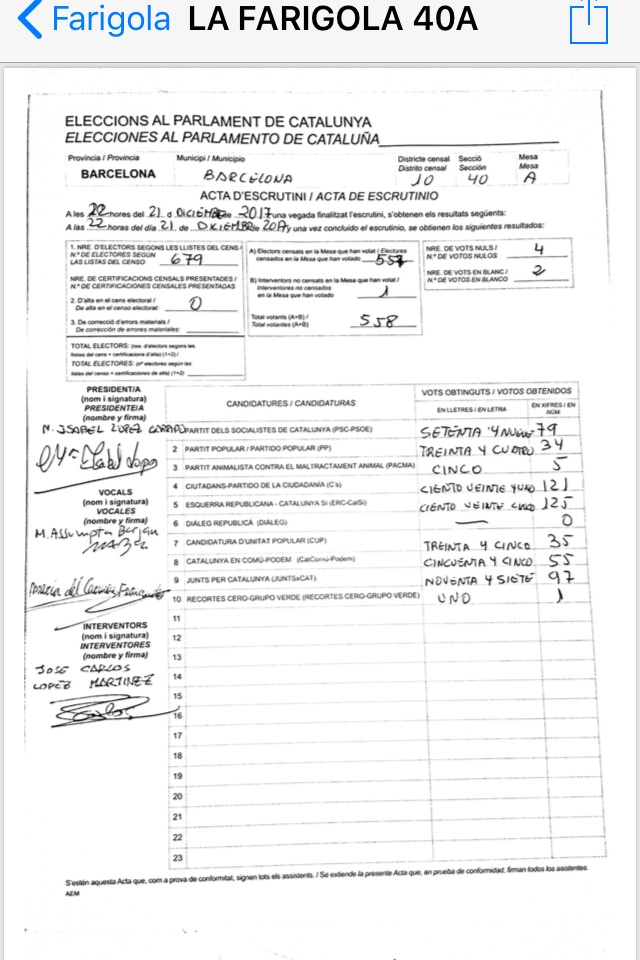 Farigola LA FARIGOLA 40A
ELECCIONS AL PARLAMENT DE CATALUNYA
ELECCIONES AL PARLAMENTO DE CATALUÑA
Província / Provincia
Municipi / Municipio
Districte censal
Distrito censal
Secció
Sección
Mesa
Mesa
BARCELONA BARCELONA 10 40 A
ACTA D'ESCRUTINI / ACTA DE ESCRUTINIO
A les 22 hores del 21 d DICIEMBRE de 2017 una vegada finalitzat l'escrutini, s'obtenen els resultats següents:
A las 22 horas del día 21 de DICIEMBRE de 2017, y una vez concluido el escrutinio, se obtienen los siguientes resultados:
1. NRE. D'ELECTORS SEGONS LES LLISTES DEL CENS /
N.º DE ELECTORES SEGÚN
LAS LISTAS DEL CENSO 679
NRE. DE CERTIFICACIONS CENSALS PRESENTADES /
N.º DE CERTIFICACIONES CENSALES PRESENTADAS
2. D'alta en el cens electoral /
De alta en el censo electoral: 0
3. De correcció d'errors materials /
De corrección de errores materiales:
TOTAL ELECTORS: (nre. d'electors segons les
llistes del cens + certificacions d'alta) (1+2) /
TOTAL ELECTORES: (nº electores según las
listas del censo + certificaciones de alta) (1+2)
A) Electors censats en la Mesa que han votat / Electores
censados en la Mesa que han votado 557
B) Interventors no censats en la Mesa que han votat /
Interventores no censados
en la Mesa que han votado 1
Total votants (A+B) /
Total votantes (A+B) 558
NRE. DE VOTS NULS /
N.º DE VOTOS NULOS 4
NRE. DE VOTS EN BLANC /
N.º DE VOTOS EN BLANCO 2
PRESIDENT/A
(nom i signatura)
PRESIDENTE/A
(nombre y firma)
M. ISABEL LOPEZ
VOCALS
(nom i signatura)
VOCALES
(nombre y firma)
M. Assumpta
INTERVENTORS
(nom i signatura)
INTERVENTORES
(nombre y firma)
JOSE CARLOS
LOPEZ MARTINEZ
CANDIDATURES / CANDIDATURAS
VOTS OBTINGUTS / VOTOS OBTENIDOS
EN LLETRES / EN LETRA
EN XIFRES / EN NÚM.
1 PARTIT DELS SOCIALISTES DE CATALUNYA (PSC-PSOE) SETENTA Y NUEVE 79
2 PARTIT POPULAR / PARTIDO POPULAR (PP) TREINTA Y CUATRO 34
3 PARTIT ANIMALISTA CONTRA EL MALTRACTAMENT ANIMAL (PACMA) CINCO 5
4 CIUTADANS-PARTIDO DE LA CIUDADANÍA (C's) CIENTO VEINTE Y UNO 121
5 ESQUERRA REPUBLICANA - CATALUNYA SÍ (ERC-CatSí) CIENTO VEINTE CINCO 125
6 DIÀLEG REPUBLICÀ (DIÀLEG) — 0
7 CANDIDATURA D'UNITAT POPULAR (CUP) TREINTA Y CINCO 35
8 CATALUNYA EN COMÚ-PODEM (CatComú-Podem) CINCUENTA Y CINCO 55
9 JUNTS PER CATALUNYA (JUNTSxCAT) NOVENTA Y SIETE 97
10 RECORTES CERO-GRUPO VERDE (RECORTES CERO-GRUPO VERDE) UNO 1
11
12
13
14
15
16
17
18
19
20
21
22
23
S'estén aquesta Acta que, com a prova de conformitat, signen tots els assistents. / Se extiende la presente Acta que, en prueba de conformidad, firman todos los asistentes.
AEM